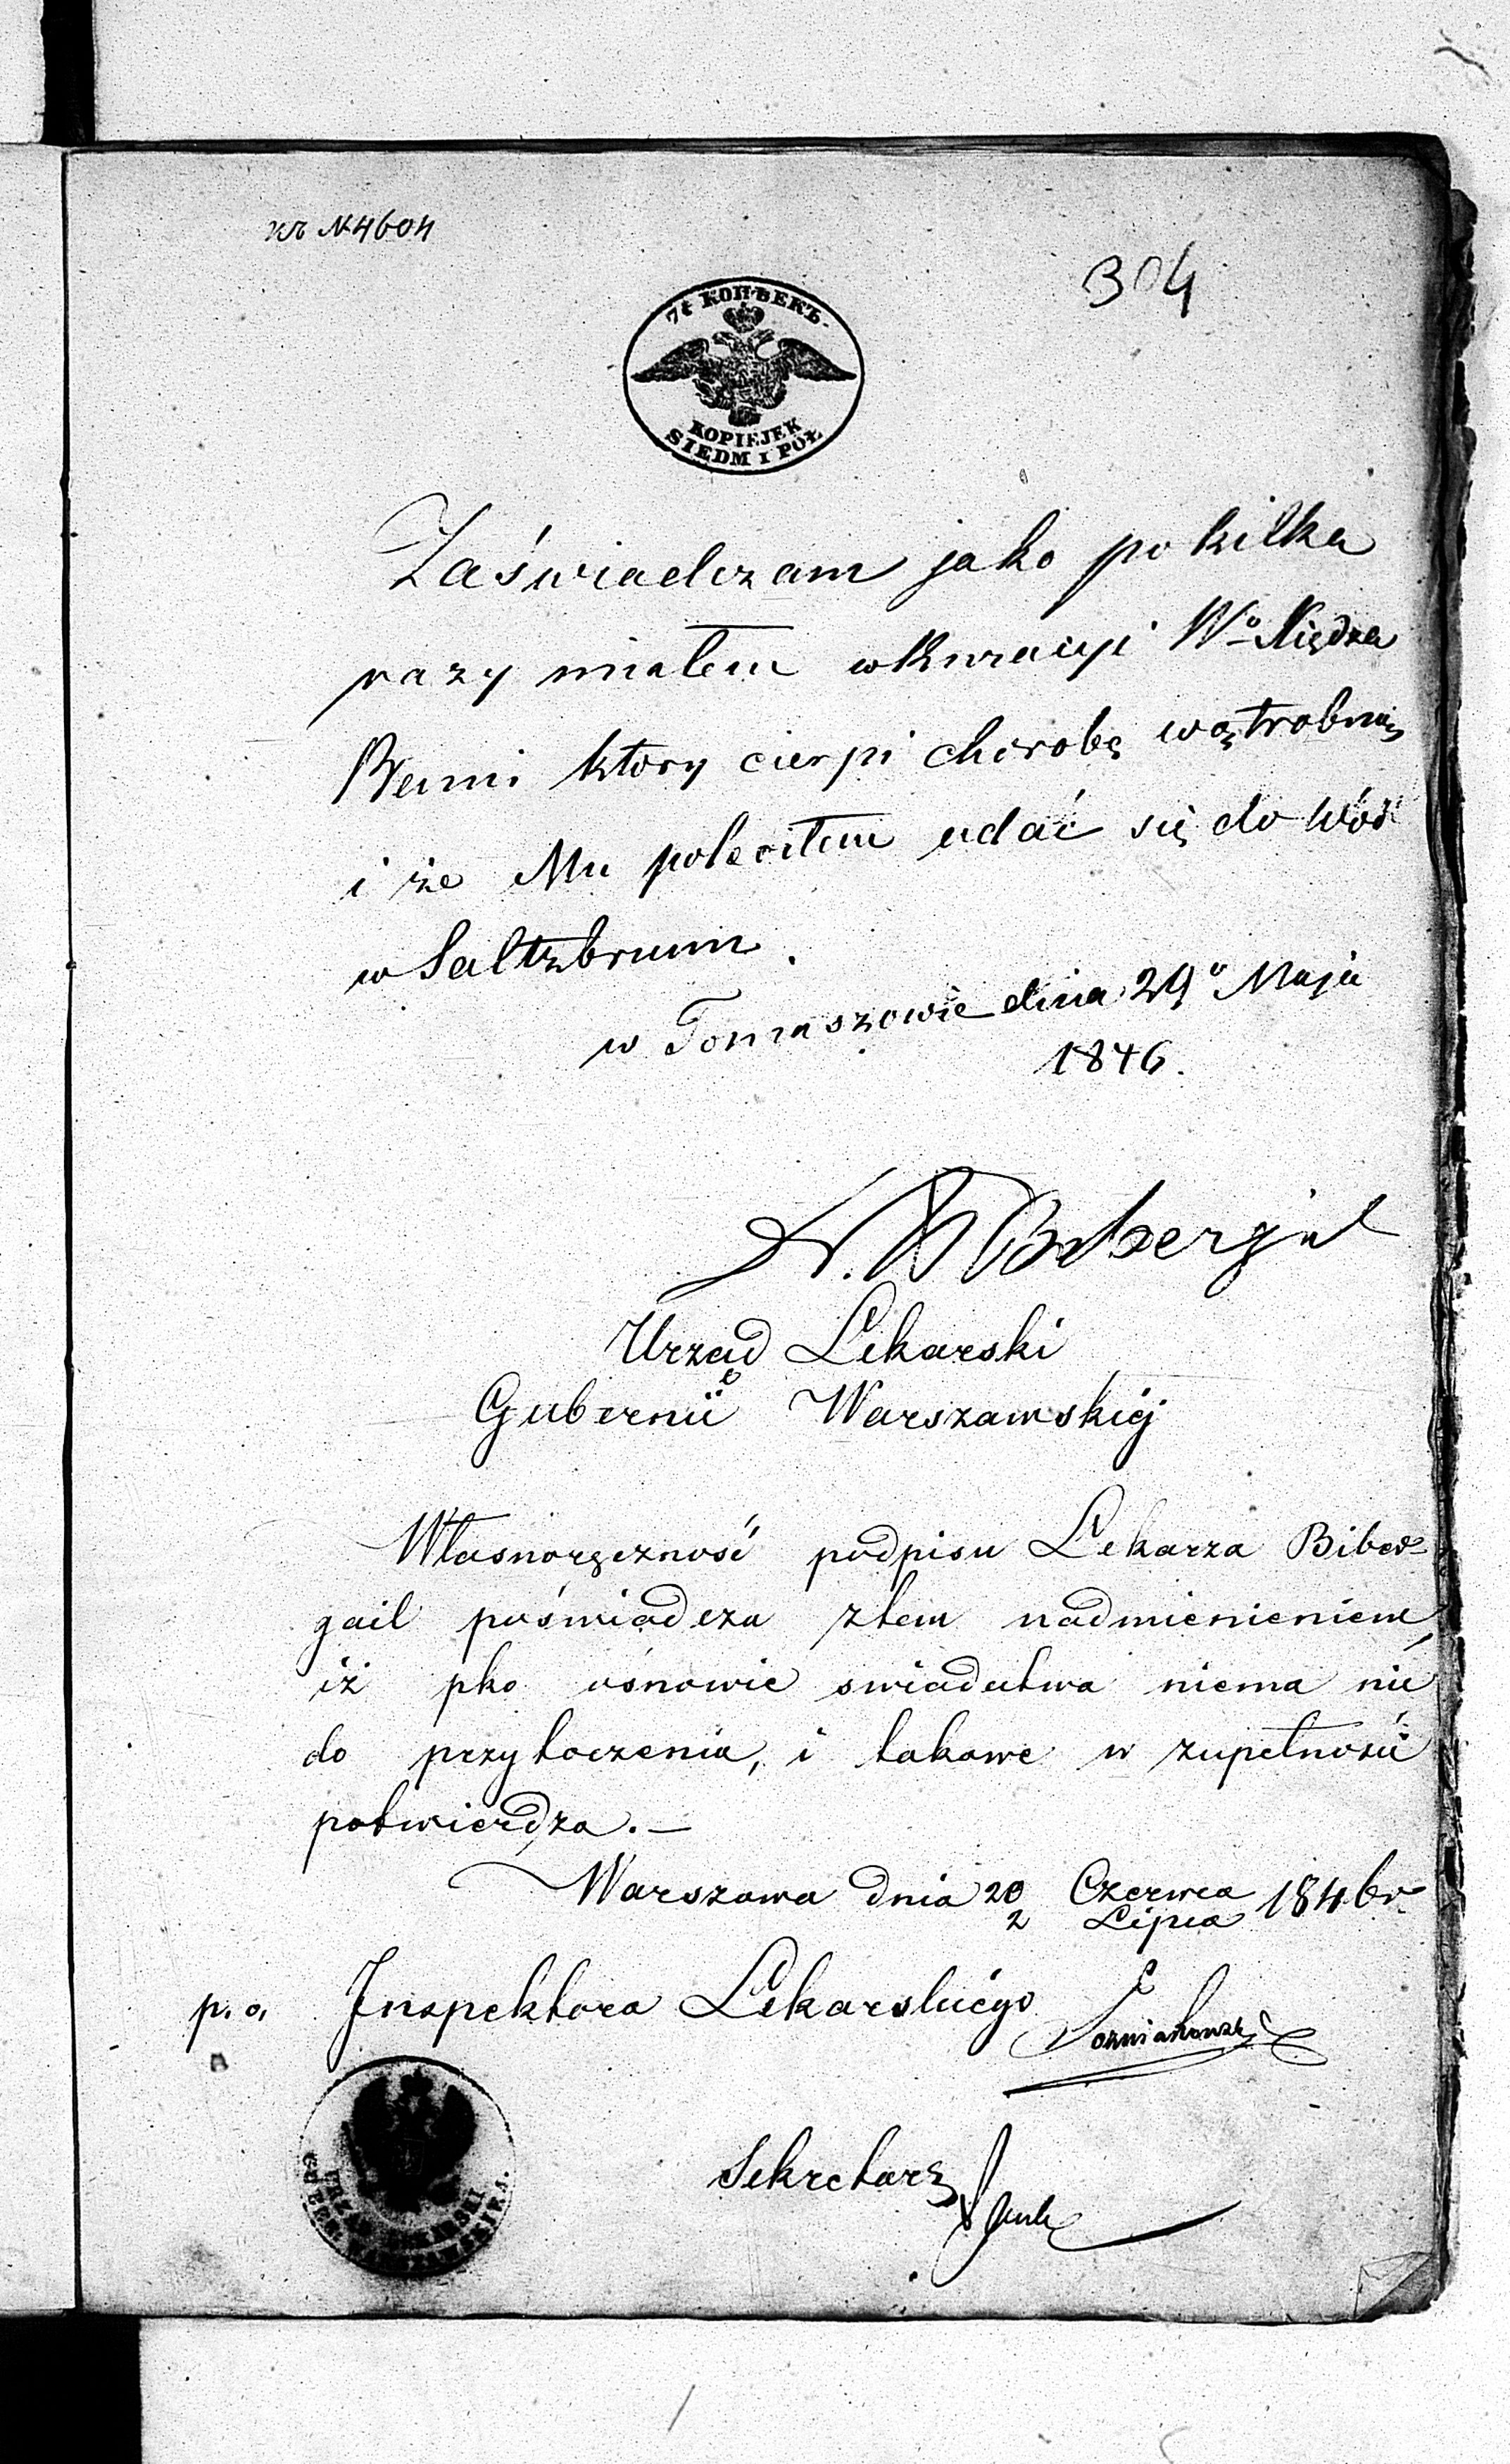 къ №4604
304
7½ КОПѢЕКЪ
KOPIEJEK
SIEDM I PÓŁ
Zaświadczam jako po kilka
razy miałem w Kuracyi Wo Księdza
Benni ktory cierpi chorobę wątrobną
i że Mu poleciłem udać się do Wód
w Saltzbrunn.
w Tomaszowie dnia 29o Maja
1846.
Dr. Bibergal
Urząd Lekarski
Gubernii Warszawskiej
Własnoręczność podpisu Lekarza Biber-
gail poświadcza z tem nadmienieniem,
iż pko osnowie swiadectwa niema nic
do przytoczenia, i takowe w zupełności
potwierdza.—
Warszawa dnia 20 Czerwca 1846 r
2 Lipca
p. o. Inspektora Lekarskiégo
Sekretarz
URZĄD LEKARSKI
GUBER. WARSZAWSKIEJ.